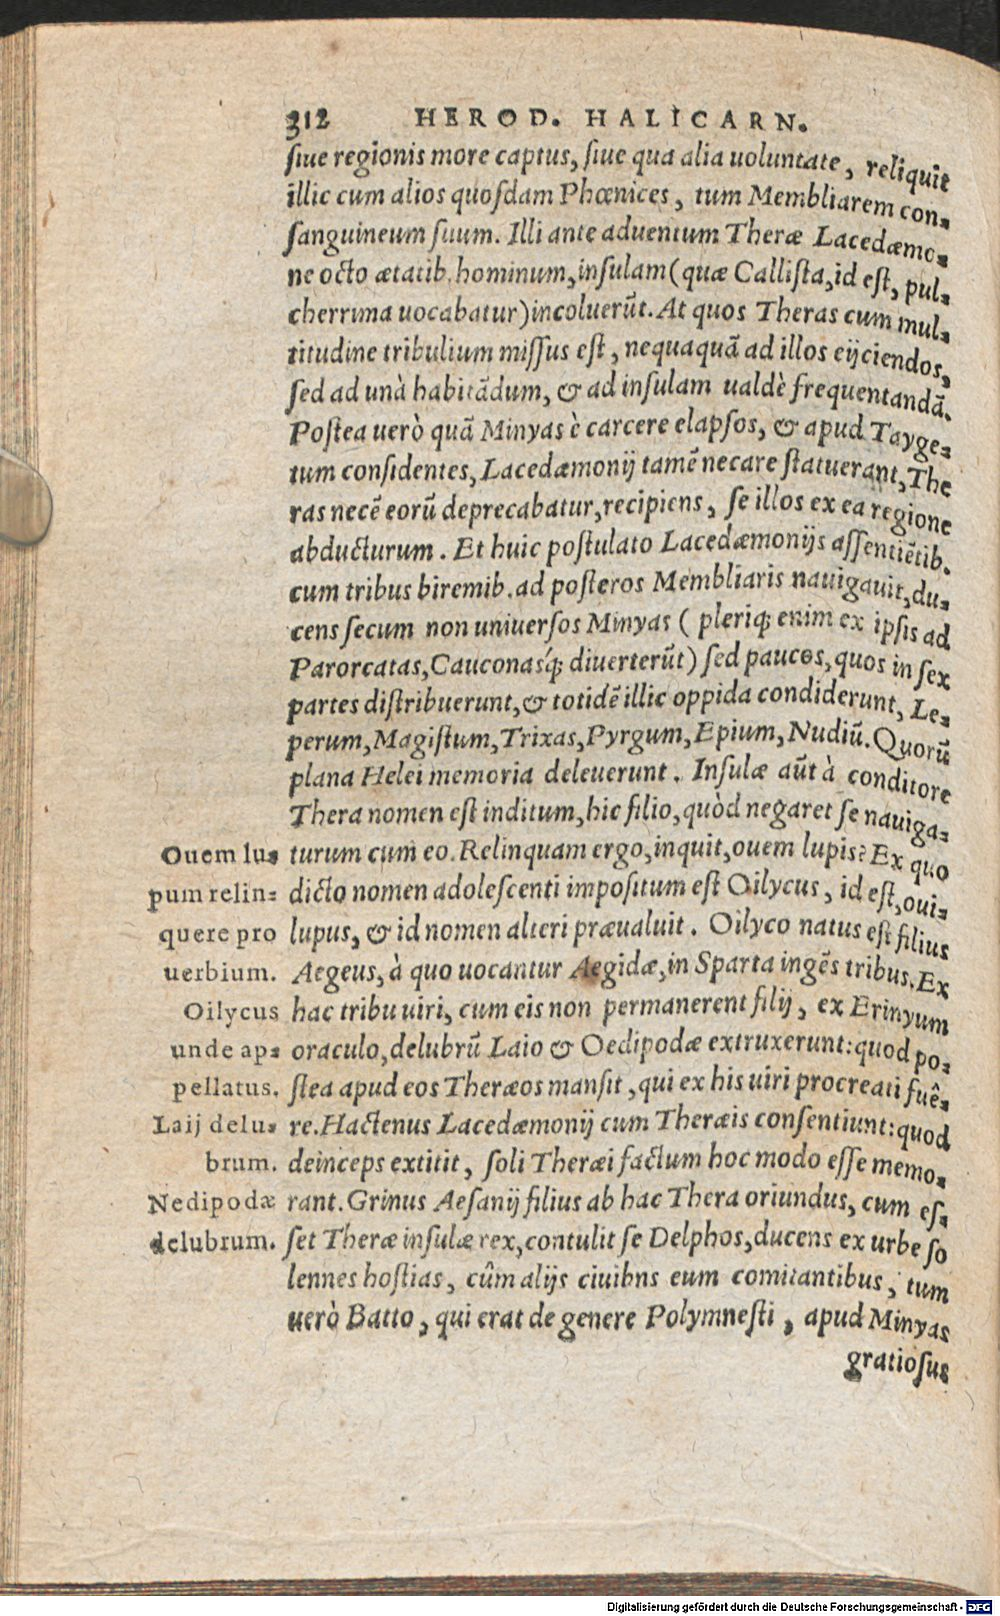 312 HEROD. HALICARN.
ſiue regionis more captus, ſiue qua alia uoluntate, reliquit
illic cum alios quoſdam Phœnices, tum Membliarem con-
ſanguineum ſuum. Illi ante aduentum Theræ Lacedæmo-
ne octo ætatib. hominum, inſulam (quæ Calliſta, id eſt, pul-
cherrima uocabatur) incoluerũt. At quos Theras cum mul-
titudine tribulium miſſus eſt, nequaquã ad illos eijciendos,
ſed ad unà habitãdum, & ad inſulam ualdè frequentandã.
Poſtea uerò quã Minyas è carcere elapſos, & apud Tayge-
tum conſidentes, Lacedæmonij tamẽ necare ſtatuerant, The
ras necẽ eorũ deprecabatur, recipiens, ſe illos ex ea regione
abducturum. Et huic poſtulato Lacedæmonijs aſſentiẽtib.
cum tribus biremib. ad poſteros Membliaris nauigauit, du-
cens ſecum non uniuerſos Minyas ( pleriq; enim ex ipſis ad
Parorcatas, Cauconasq́; diuerterũt) ſed paucos, quos in ſex
partes diſtribuerunt, & totidẽ illic oppida condiderunt, Le-
perum, Magiſtum, Trixas, Pyrgum, Epium, Nudiũ. Quorũ
plana Helei memoria deleuerunt. Inſulæ aũt à conditore
Thera nomen eſt inditum, hic filio, quòd negaret ſe nauiga-
Ouem lu- turum cum eo. Relinquam ergo, inquit, ouem lupis? Ex quo
pum relin- dicto nomen adoleſcenti impoſitum eſt Oilycus, id eſt, oui-
quere pro lupus, & id nomen alteri præualuit. Oilyco natus eſt filius
uerbium. Aegeus, à quo uocantur Aegidæ, in Sparta ingẽs tribus. Ex
Oilycus hac tribu uiri, cum eis non permanerent filij, ex Erinyum
unde ap- oraculo, delubrũ Laio & Oedipodæ extruxerunt: quod po-
pellatus. ſtea apud eos Theræos manſit, qui ex his uiri procreati fuê-
Laij delu- re. Hactenus Lacedæmonij cum Theræis conſentiunt: quod
brum. deinceps extitit, ſoli Theræi factum hoc modo eſſe memo-
Nedipodæ rant. Grinus Aeſanij filius ab hac Thera oriundus, cum eſ-
delubrum. ſet Theræ inſulæ rex, contulit ſe Delphos, ducens ex urbe ſo
lennes hoſtias, cûm alijs ciuibns eum comitantibus, tum
uerò Batto, qui erat de genere Polymneſti, apud Minyas
gratioſus
Digitalisierung gefördert durch die Deutsche Forschungsgemeinschaft - DFG